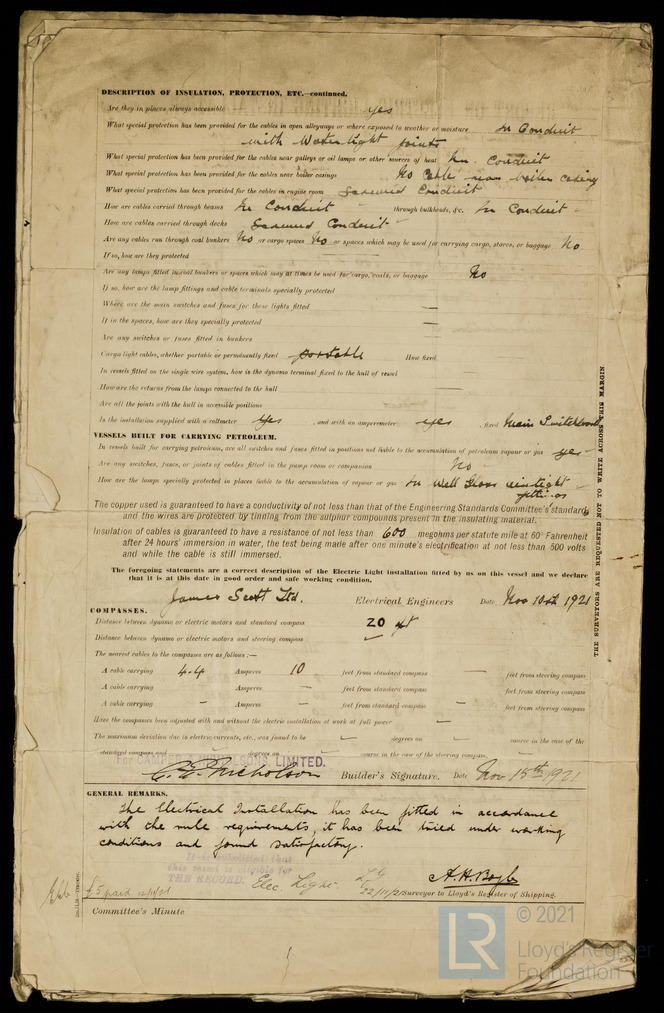 DESCRIPTION OF INSULATION, PROTECTION, ETC.—continued.
Are they in places always accessible yes
What special protection has been provided for the cables in open alleyways or where exposed to weather or moisture In Conduit
with Watertight joints
What special protection has been provided for the cables near galleys or oil lamps or other sources of heat In Conduit
What special protection has been provided for the cables near boiler casings No Cable near boiler casing
What special protection has been provided for the cables in engine room Screwed Conduit
How are cables carried through beams In Conduit through bulkheads, &c. In Conduit
How are cables carried through decks Screwed Conduit
Are any cables run through coal bunkers No or cargo spaces No or spaces which may be used for carrying cargo, stores, or baggage No
If so, how are they protected
Are any lamps fitted in coal bunkers or spaces which may at times be used for cargo, coals, or baggage No
If so, how are the lamp fittings and cable terminals specially protected
Where are the main switches and fuses for these lights fitted —
If in the spaces, how are they specially protected —
Are any switches or fuses fitted in bunkers
Cargo light cables, whether portable or permanently fixed portable How fixed
In vessels fitted on the single wire system, how is the dynamo terminal fixed to the hull of vessel
How are the returns from the lamps connected to the hull
Are all the joints with the hull in accessible positions
Is the installation supplied with a voltmeter Yes, and with an amperemeter yes, fixed Main Switchboard
VESSELS BUILT FOR CARRYING PETROLEUM.
In vessels built for carrying petroleum, are all switches and fuses fitted in positions not liable to the accumulation of petroleum vapour or gas yes
Are any switches, fuses, or joints of cables fitted in the pump room or companion No
How are the lamps specially protected in places liable to the accumulation of vapour or gas In Well Glass airtight
fittings
The copper used is guaranteed to have a conductivity of not less than that of the Engineering Standards Committee's standard,
and the wires are protected by tinning from the sulphur compounds present in the insulating material.
Insulation of cables is guaranteed to have a resistance of not less than 600 megohms per statute mile at 60° Fahrenheit
after 24 hours' immersion in water, the test being made after one minute's electrification at not less than 500 volts
and while the cable is still immersed.
The foregoing statements are a correct description of the Electric Light installation fitted by us on this vessel and we declare
that it is at this date in good order and safe working condition.
James Scott Ltd. Electrical Engineers Date Nov 10th 1921
COMPASSES.
Distance between dynamo or electric motors and standard compass 20 ft
Distance between dynamo or electric motors and steering compass
The nearest cables to the compasses are as follows:—
A cable carrying 4.4 Amperes 10 feet from standard compass — feet from steering compass
A cable carrying — Amperes — feet from standard compass feet from steering compass
A cable carrying — Amperes — feet from standard compass — feet from steering compass
Have the compasses been adjusted with and without the electric installation at work at full power —
The maximum deviation due to electric currents, etc., was found to be degrees on course in the case of the
standard compass and degrees on course in the case of the steering compass.
For CAMPER & NICHOLSONS, LIMITED.
C. E. Nicholson Builder's Signature. Date Nov 15th 1921
GENERAL REMARKS.
The Electrical Installation has been fitted in accordance
with the rule requirements, it has been tried under working
conditions and found satisfactory.
It is submitted that
this vessel is eligible for
THE RECORD. Elec. Light.
22/11/21
A. H. Boyle
Surveyor to Lloyd's Register of Shipping.
£5 paid
Committee's Minute
THE SURVEYORS ARE REQUESTED NOT TO WRITE ACROSS THIS MARGIN
LR
© 2021
Lloyd's Register
Foundation